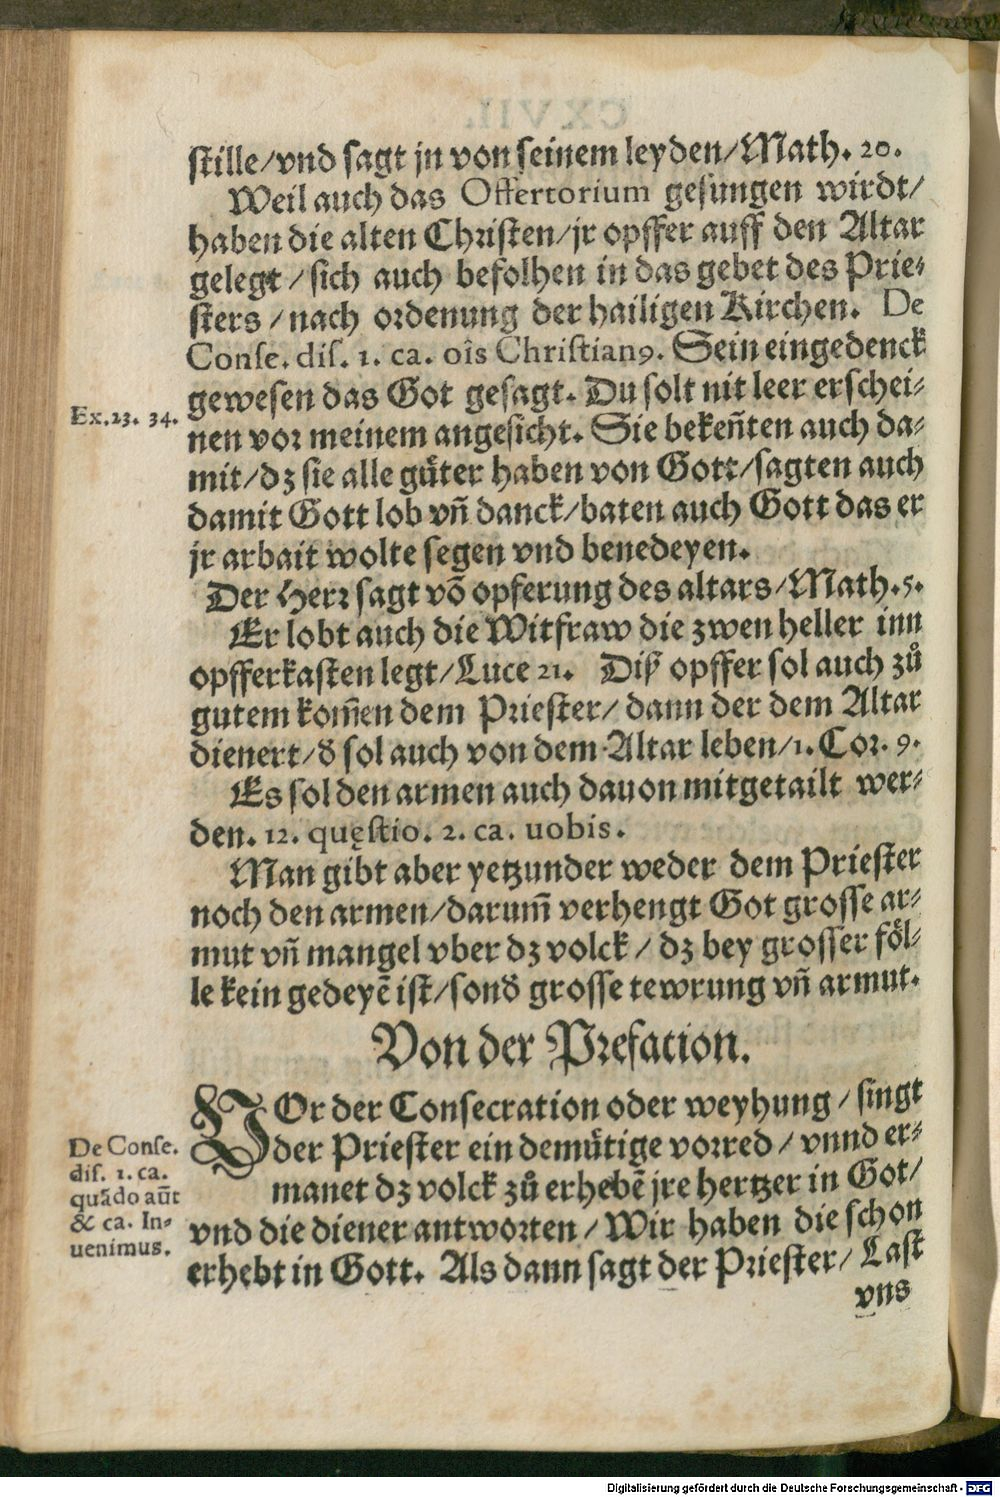 stille/vnd sagt jn von seinem leyden/Math. 20.
Weil auch das Offertorium gesungen wirdt/
haben die alten Christen/jr opffer auff den Altar
gelegt/sich auch befolhen in das gebet des Prie-
sters/nach ordenung der hailigen Kirchen. De
Conse. dis. 1. ca. oîs Christian9. Sein eingedenck
gewesen das Got gesagt. Du solt nit leer erschei-
Ex.23. 34.
nen vor meinem angesicht. Sie bekeñten auch da-
mit/dz sie alle gu̎ter haben von Gott/sagten auch
damit Gott lob vñ danck/baten auch Gott das er
jr arbait wolte segen vnd benedeyen.
Der Herr sagt võ opferung des altars/Math.5.
Er lobt auch die Witfraw die zwen heller inn
opfferkasten legt/Luce 21. Diß opffer sol auch zů
gutem kom̃en dem Priester/dann der dem Altar
dienert/d̛ sol auch von dem Altar leben/1. Cor. 9.
Es sol den armen auch dauon mitgetailt wer-
den. 12. quęstio. 2. ca. uobis.
Man gibt aber yetzunder weder dem Priester
noch den armen/darum̃ verhengt Got grosse ar-
mut vñ mangel vber dz volck/dz bey grosser föl-
le kein gedeyẽ ist/sond̛ grosse tewrung vñ armut.
Von der Prefacion.
VOr der Consecration oder weyhung/singt
der Priester ein demütige vorred/vnnd er-
manet dz volck zů erhebẽ jre hertzer in Got/
vnd die diener antworten/Wir haben die schon
erhebt in Gott. Als dann sagt der Priester/Last
vns
De Conse.
dis. 1. ca.
quãdo aũt
& ca. In-
uenimus.
Digitalisierung gefördert durch die Deutsche Forschungsgemeinschaft - DFG